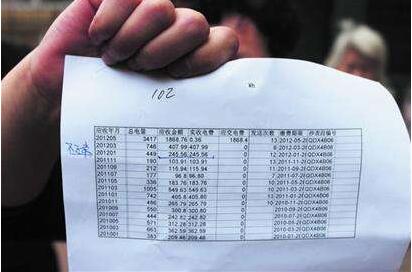 102 Wh
应收年月 总电量 应收金额 实收电费 应交电费 发送次数 缴费期限 抄表段编号
201205 3417 1868.76 0.36 1868.4 13 2012-05-2 QDX4B06
201203 746 407.99 407.99 0 8 2012-03-2 QDX4B06
201201 449 245.56 245.56 0 2012-01-2 QDX4B06
201111 190 103.91 103.91 0 2011-11-2 QDX4B06
201109 212 115.94 115.94 0 2011-09-2 QDX4B06
201107 177 96.8 96.80 0 2011-07-2 QDX4B06
201105 336 183.76 183.76 0 10 2011-05-2 QDX4B06
201103 1005 549.63 549.63 0 2011-03-2 QDX4B06
201101 742 405.8 405.80 0 2011-01-2 QDX4B06
201011 486 265.79 265.79 0 2010-11-2 QDX4B06
201009 550 300.8 300.80 0 2010-09-2 QDX4B06
201007 444 242.82 242.82 0 2010-07-2 QDX4B06
201005 571 312.28 312.28 0 2010-05-2 QDX4B06
201003 663 362.59 362.59 0 2010-03-2 QDX4B06
201001 383 209.46 209.46 0 2010-01-2 QDX4B06